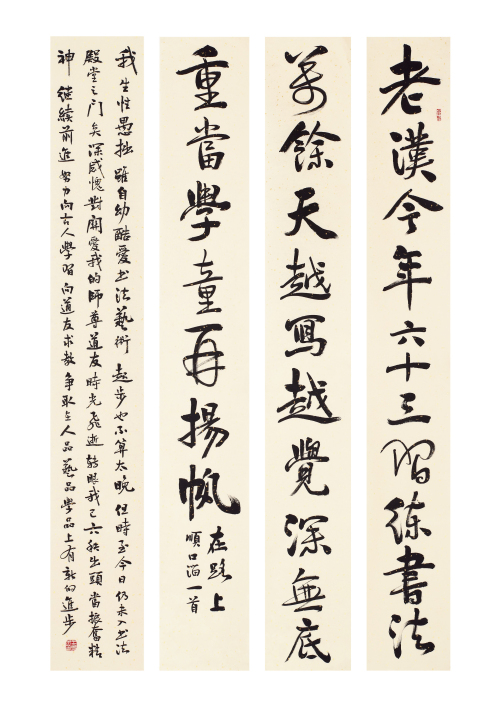 老漢今年六十三習練書法
萬餘天越寫越覺深無底
重當學童再揚帆
在路上
順口溜一首
我生性愚拙雖自幼酷愛书法藝術起步也不算太晚但時至今日仍未入书法
殿堂之门矣深感愧對關愛我的師尊道友時光飛逝轉眼我已六秩出頭當振奮精
神继續前進努力向古人學習向道友求教争取在人品藝品學品上有新的進步